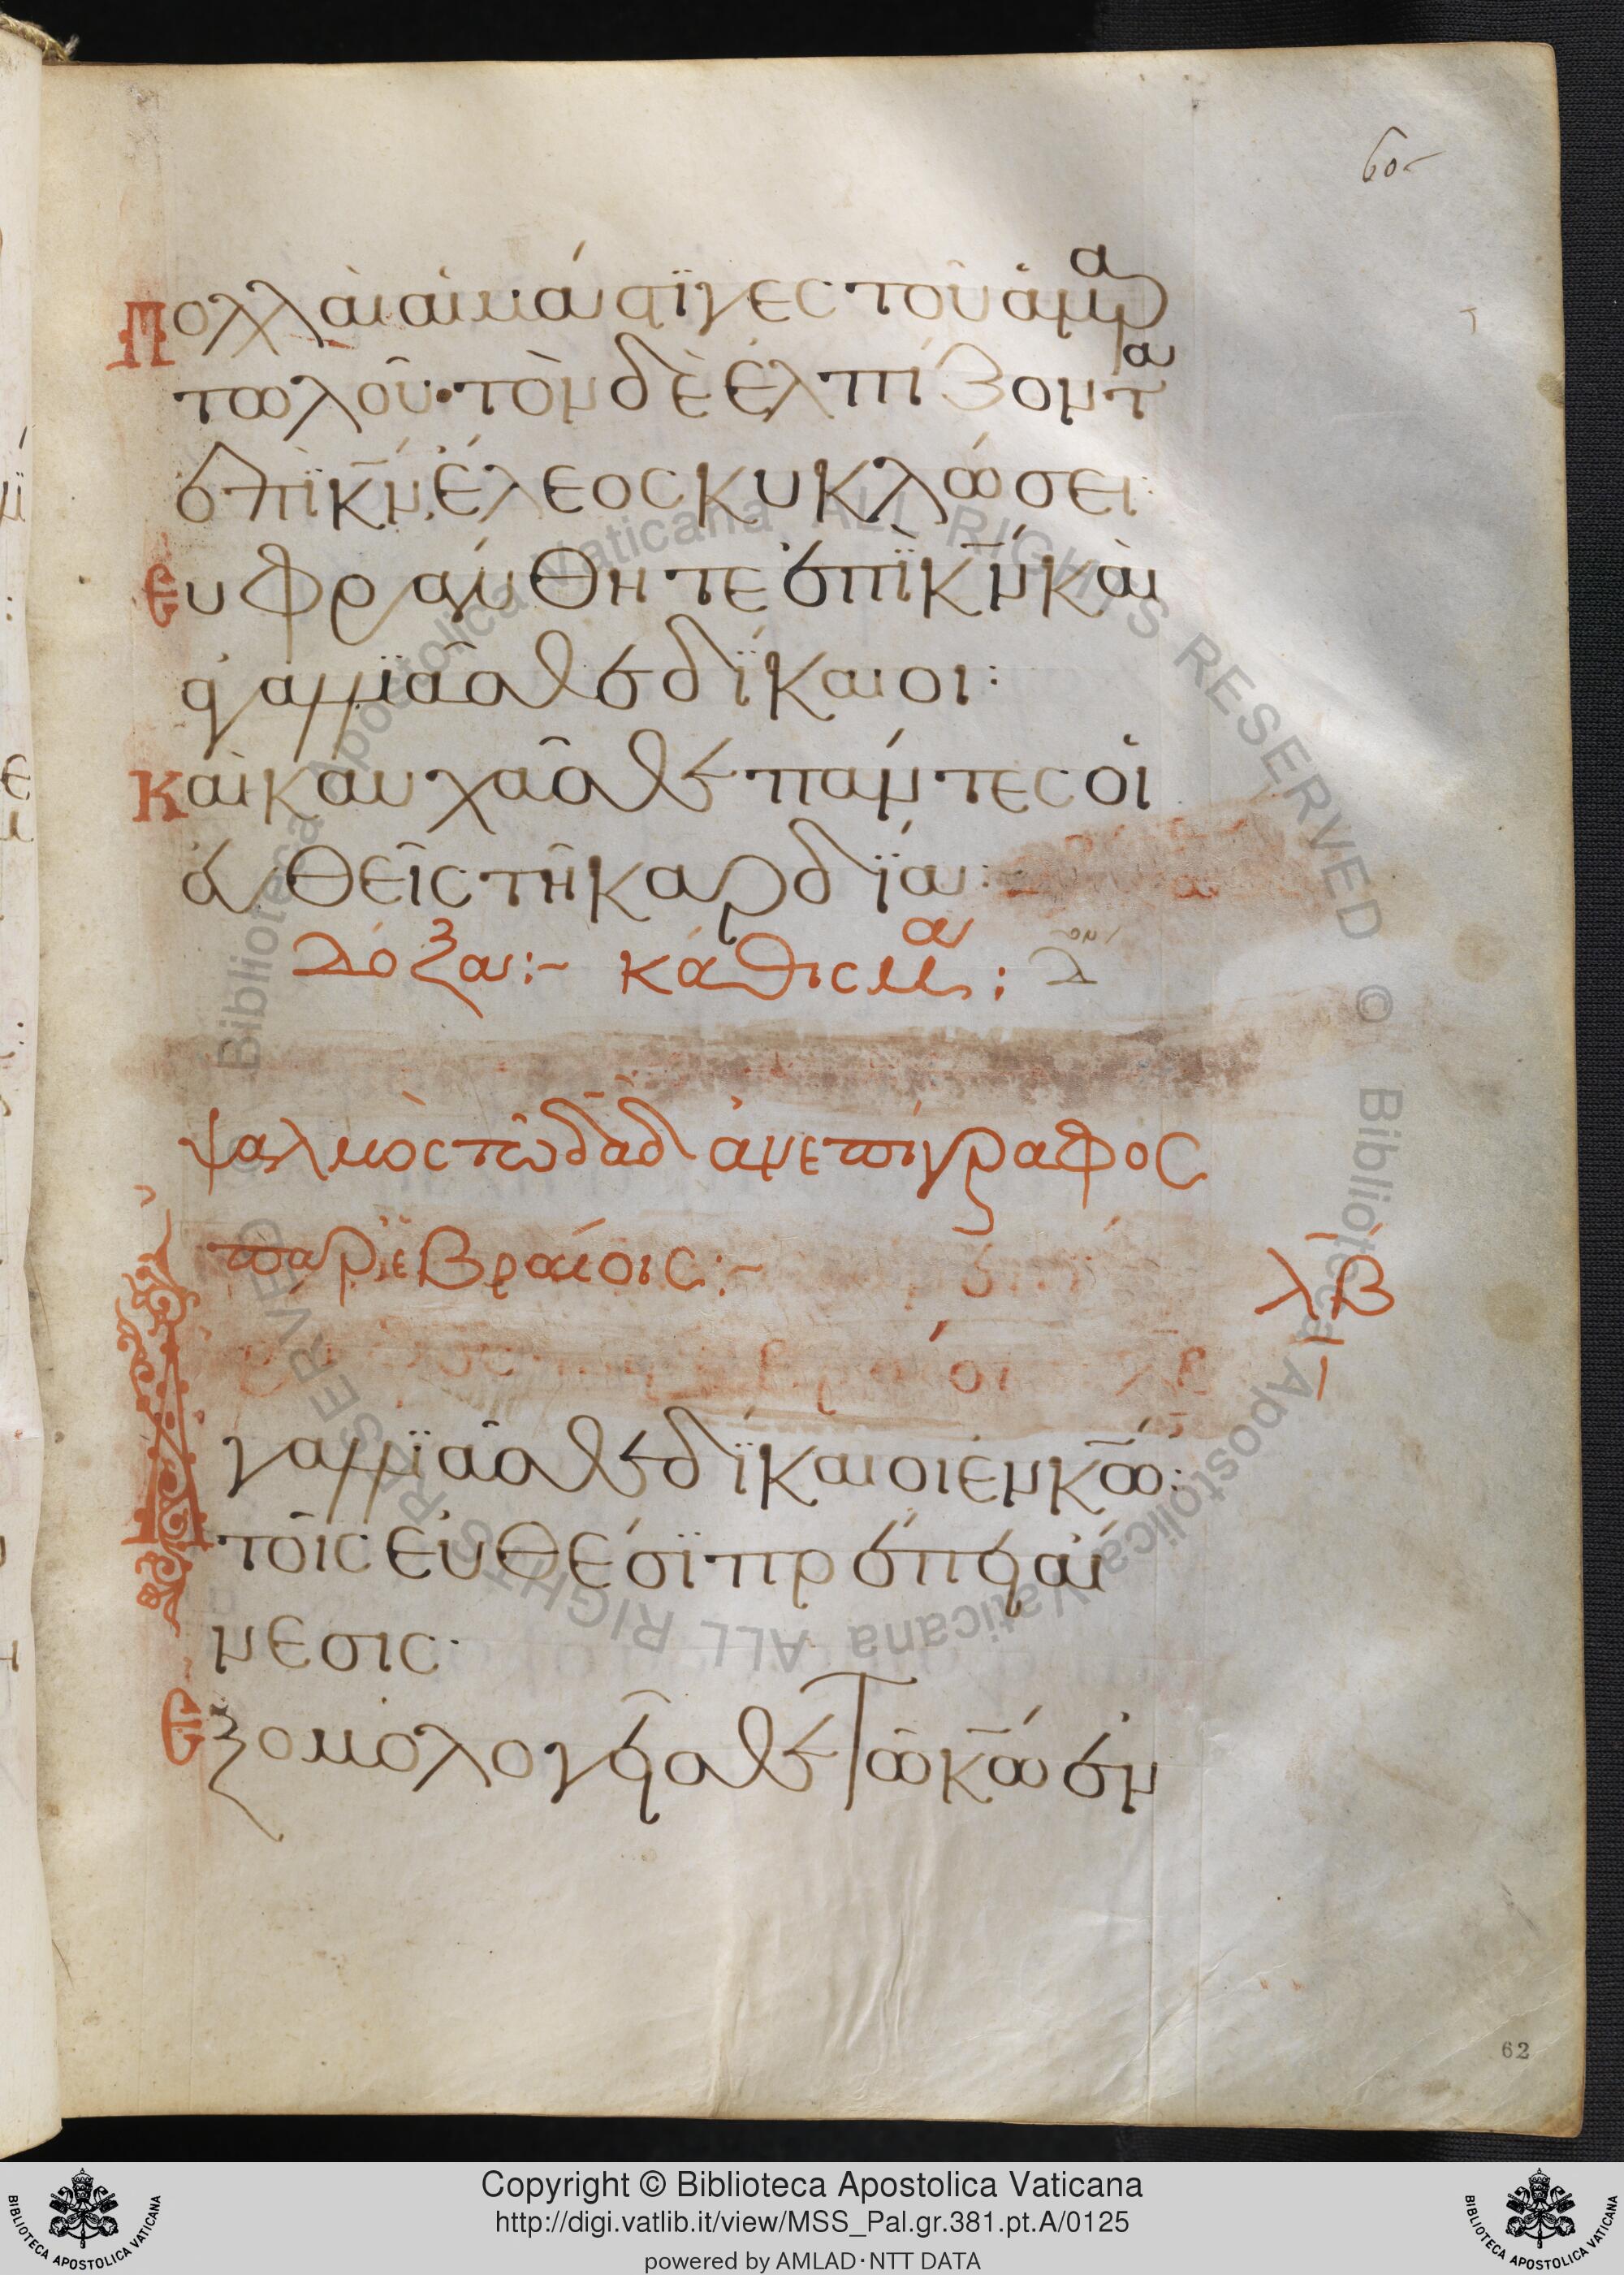 60
Πολλαὶ αἱ μάστϊγες τοῦ ἁμαρ
τωλοῦ· τὸν δὲ ἐλπίζοντα
ἐπῒ κν̄ ἔλεος κυκλώσει:
Ευφράνθητε ἐπῒ κν̄ καὶ
ἀγαλλϊᾶσθε δίκαιοι:
Καὶ καυχᾶσθε πάντες οἱ
ἐυθεῖς τῆ καρδία:
Δόξα:~ κάθισμα:
ψαλμὸς τῶ δᾱδ ἀνεπίγραφος
παρ' ἑβραίοις:~
λβ
Αγαλλϊᾶσθε δίκαιοι ἐν κ̄ω:
τοῖς ἐυθέσϊ πρέπει αἴ
νεσις·
Εξομολογεῖσθε τῶ κ̄ω ἐν
62
Biblioteca Apostolica Vaticana ALL RIGHTS RESERVED © Biblioteca Apostolica Vaticana ALL RIGHTS RESERVED ©
Copyright © Biblioteca Apostolica Vaticana
http://digi.vatlib.it/view/MSS_Pal.gr.381.pt.A/0125
powered by AMLAD·NTT DATA
BIBLIOTECA APOSTOLICA VATICANA
BIBLIOTECA APOSTOLICA VATICANA